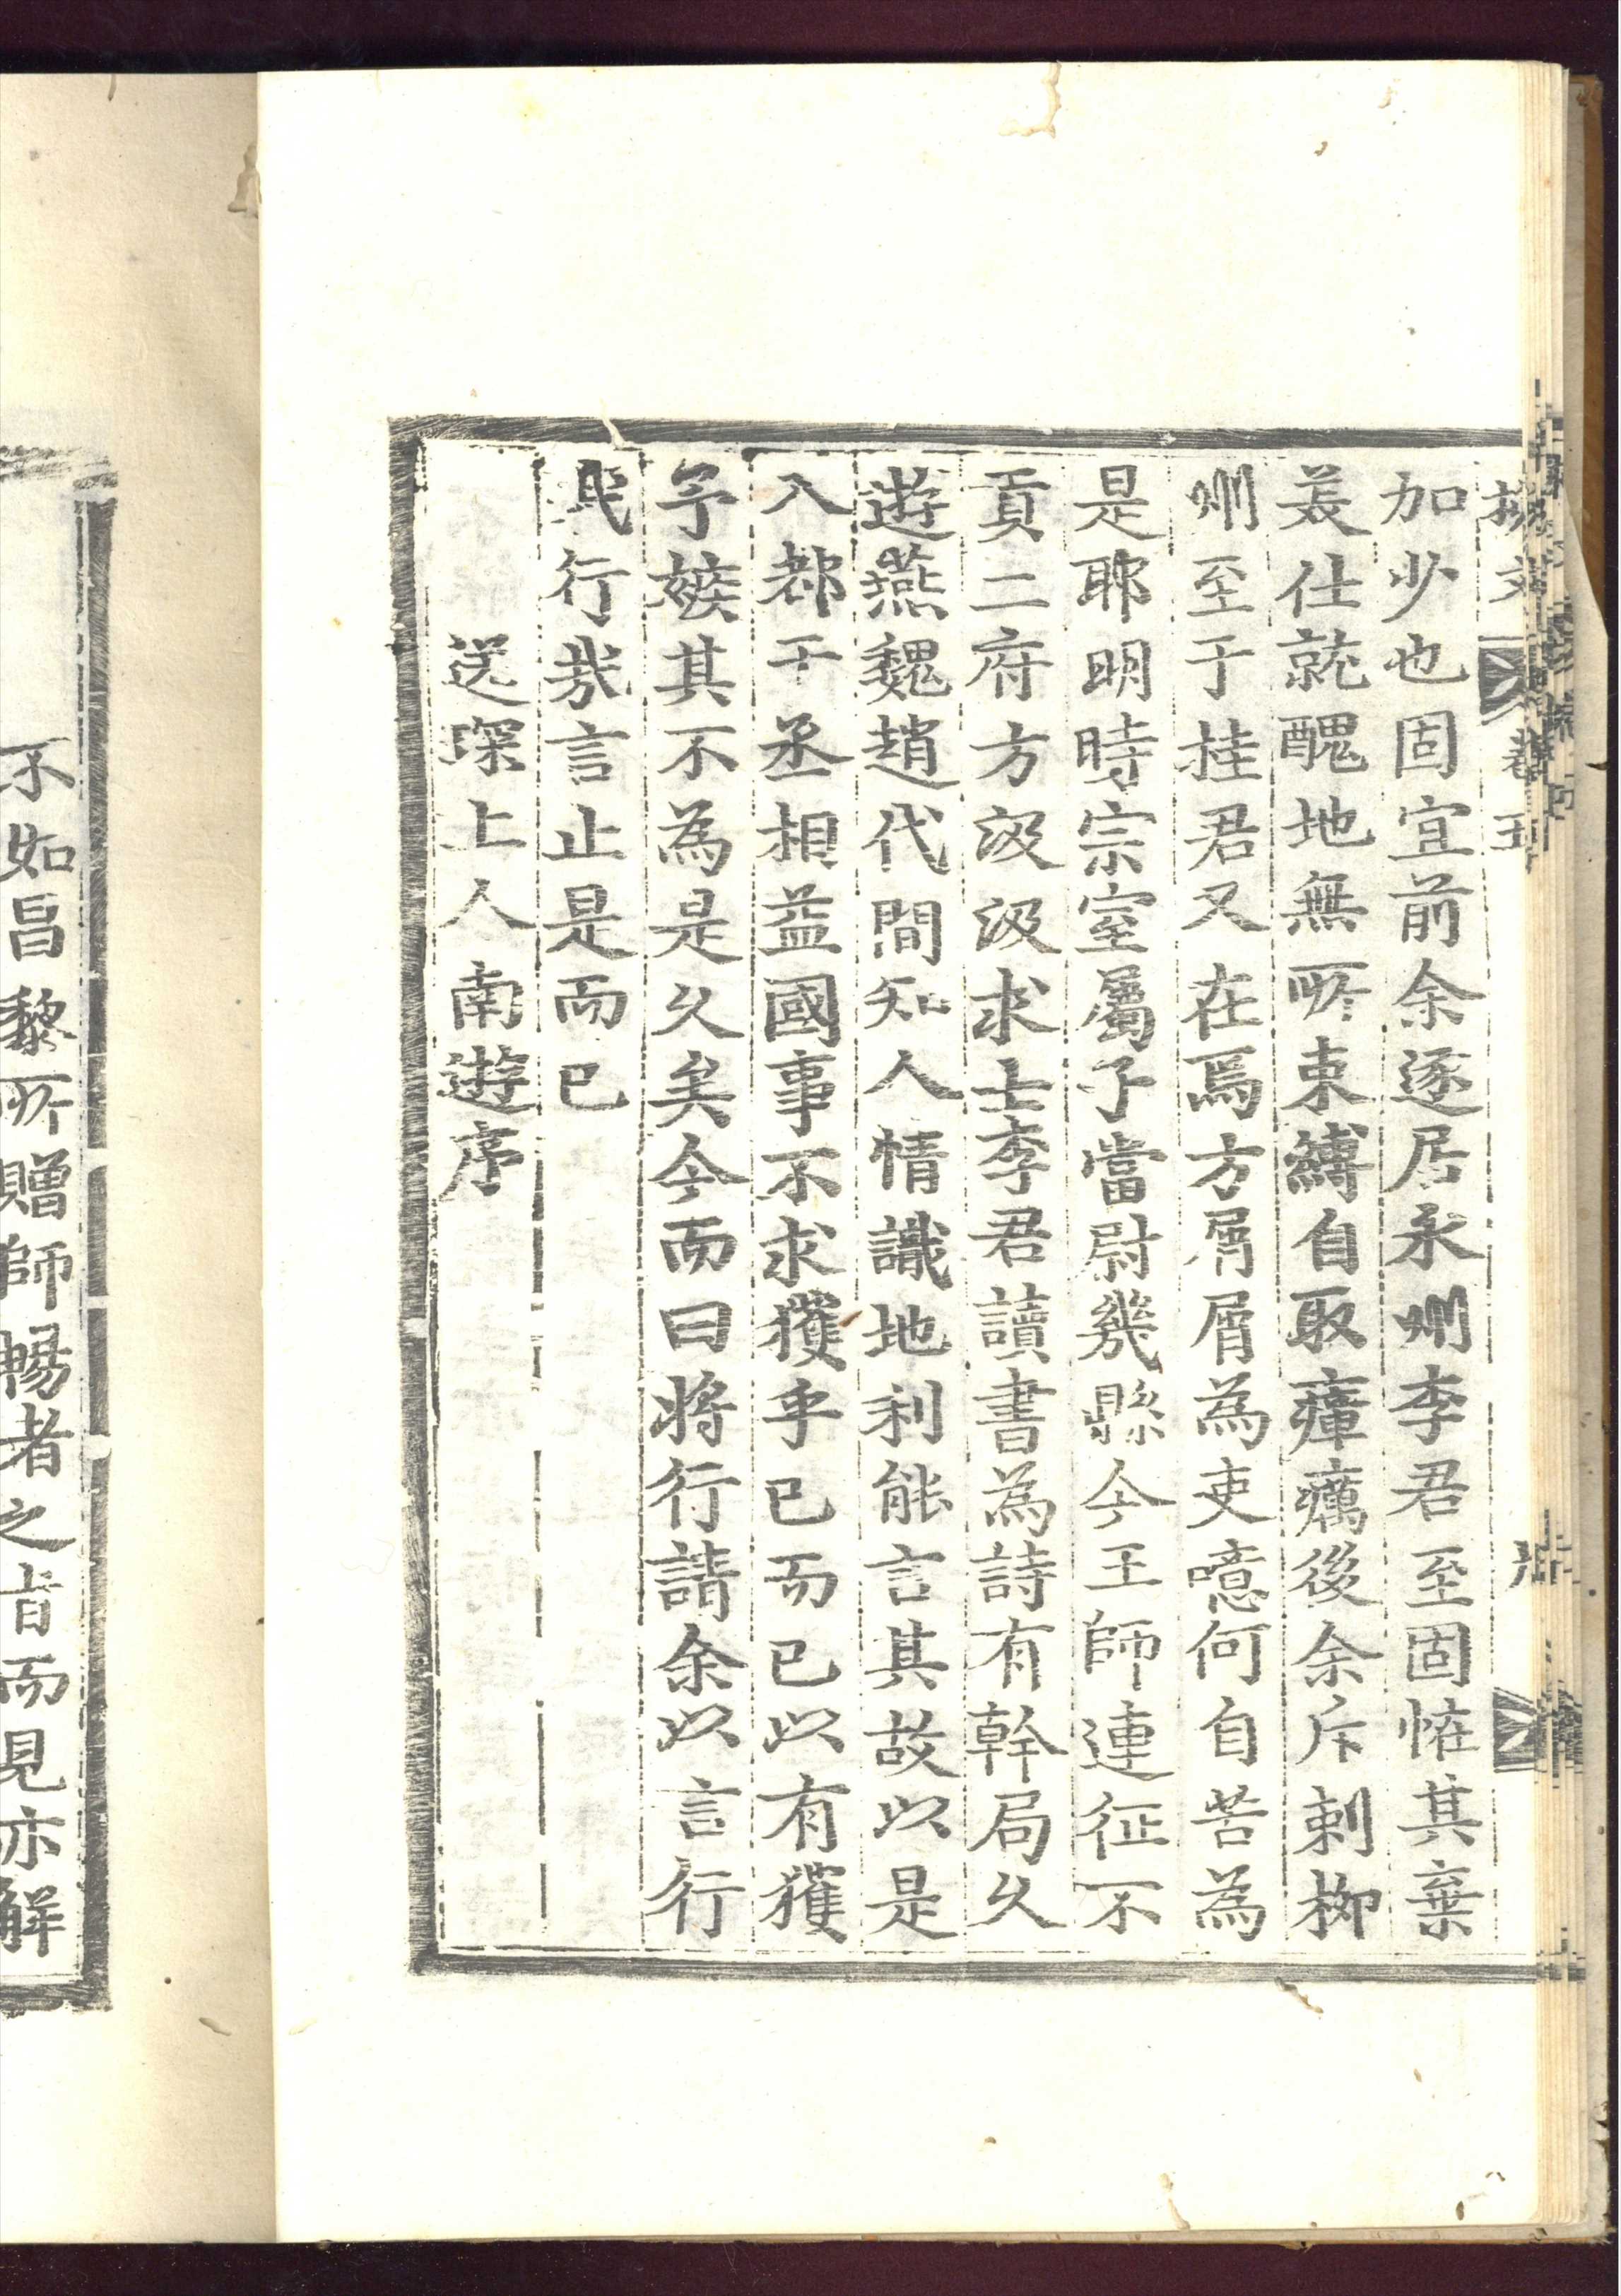 文 卷五
加少也固宜前余逐居永州李君至固恠其棄
美仕就醜地無所束縛自取瘴癘後余斥刺柳
州至于桂君又在焉方屑屑為吏噫何自苦為
是耶明時宗室屬子當尉幾縣今王師連征不
貢二府方汲汲求士李君讀書為詩有幹局久
遊燕魏趙代間知人情識地利能言其故以是
入都干丞相益國事不求獲乎已而已以有獲
予嫉其不為是久矣今而曰將行請余以言行
哉行哉言止是而已
送琛上人南遊序
不如昌黎所贈師暢者之旨而見亦解